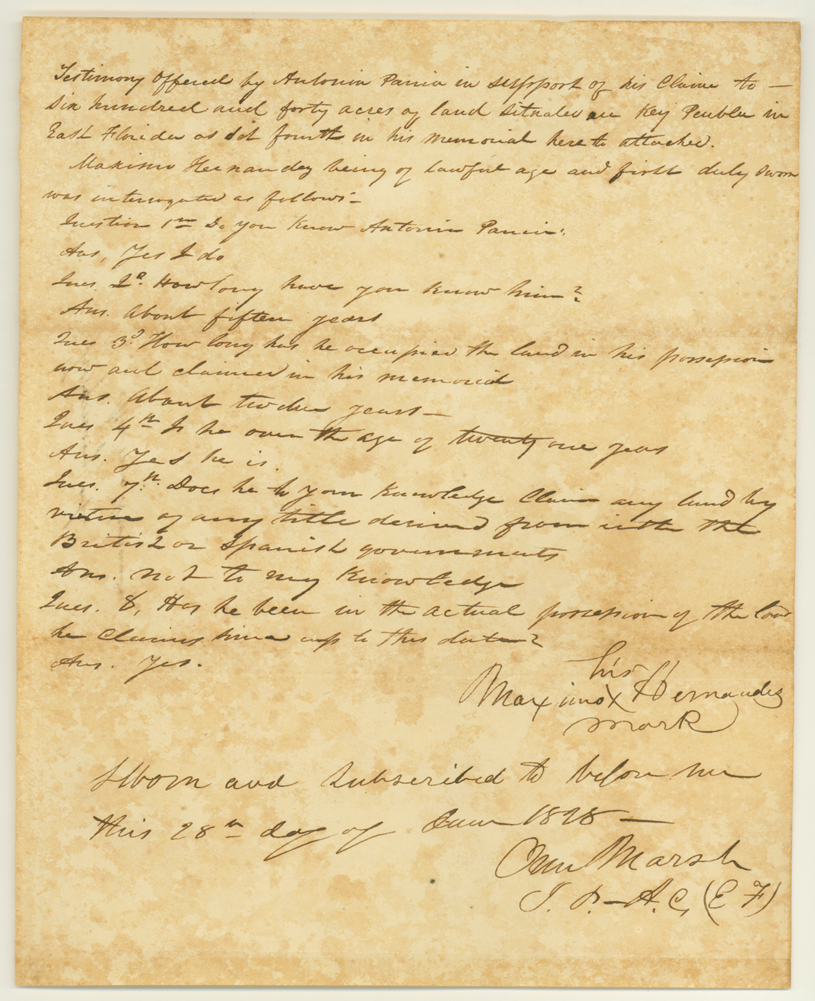 Testimony Offered by Antonio Pania in support of his Claim to —
six hundred and forty acres of land situated on Key Peublu in
East Florida as set fourth in his memorial here to attached.
Maximo Hernandez being of lawful age and first duly sworn
was interrogated as follows —
Question 1st Do you know Antonio Pania?
Ans, Yes I do
Ques. 2d. How long have you know him?
Ans. About fifteen years
Ques 3d How long has he occupied the land in his possession
now and claimed in his memorial
Ans. About twelve years —
Ques 4th Is he over the age of twenty one years
Ans. Yes he is.
Ques. 7th. Does he to your Knowledge Claim any land by
virtue of any title derived from either the
British or Spanish governments
Ans. not to my Knowledge
Ques. 8, Has he been in the actual possession of the land
he claims since up to this date?
Ans. Yes.
his
Maximo X Hernandez
mark
Sworn and Subscribed to before me
this 28th day of June 1828 —
Marsh
J. P. — A. C, (E F)